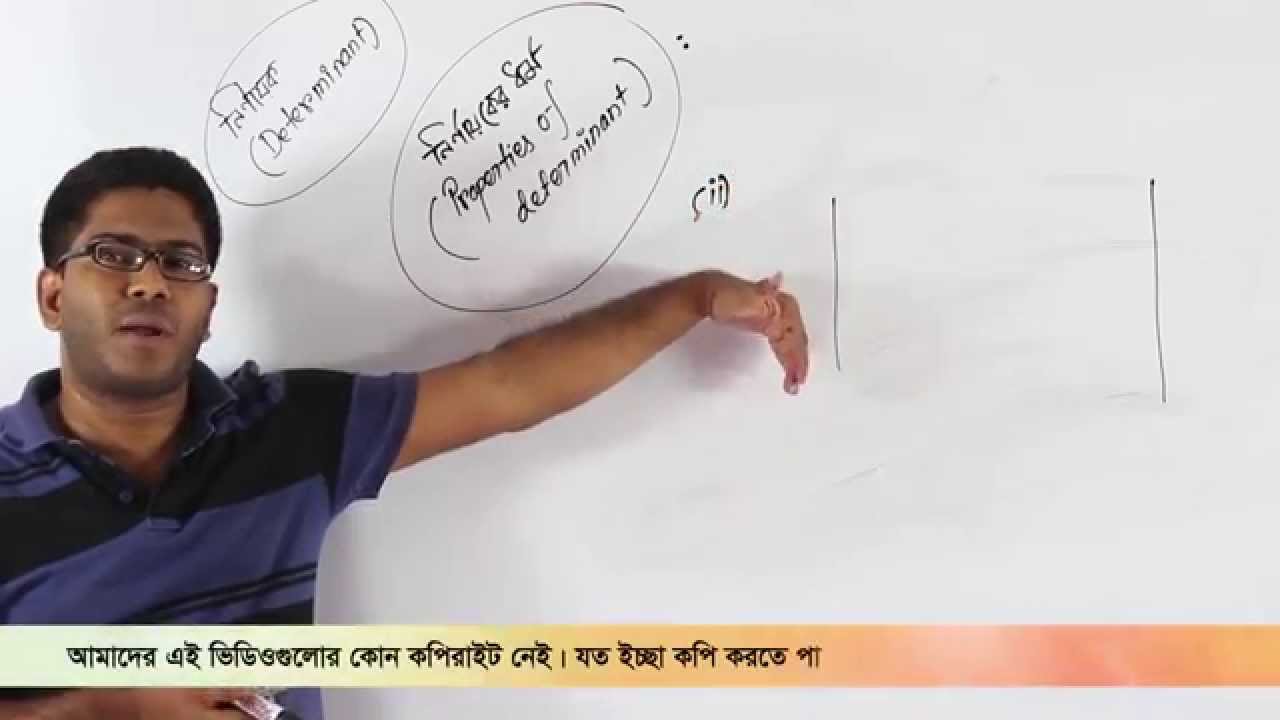 নির্ণায়ক
(Determinant)
নির্ণায়কের ধর্ম
(Properties of
determinant)
:
(ii)
আমাদের এই ভিডিওগুলোর কোন কপিরাইট নেই। যত ইচ্ছা কপি করতে পা